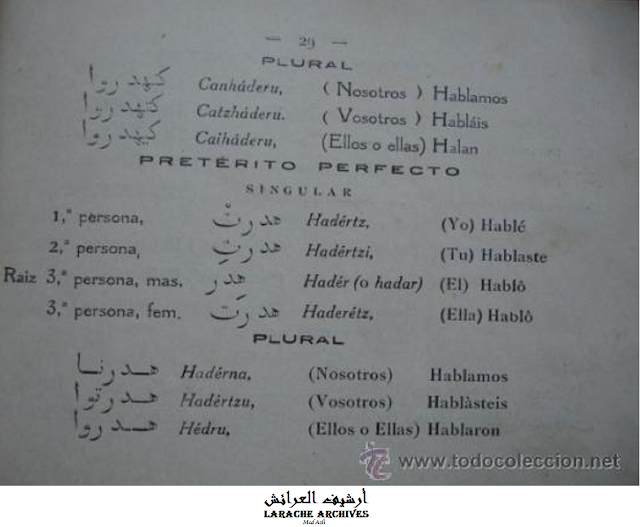 — 29 —
PLURAL
كنهدروا Canháderu, (Nosotros) Hablamos
كتهدروا Catzháderu. (Vosotros) Habláis
كيهدروا Caiháderu, (Ellos o ellas) Halan
PRETÉRITO PERFECTO
SINGULAR
1,ª persona, هدرتْ Hadértz, (Yo) Hablé
2,ª persona, هدرتِ Hadértzi, (Tu) Hablaste
Raiz 3,ª persona, mas. هدر Hadér (o hadar) (El) Hablô
3,ª persona, fem. هدرَت Haderétz, (Ella) Hablô
PLURAL
هدرنا Hadérna, (Nosotros) Hablamos
هدرتوا Hadértzu, (Vosotros) Hablàsteis
هدروا Hédru, (Ellos o Ellas) Hablaron
www.todocoleccion.net
أرشيف العرائش
LARACHE ARCHIVES
Med Adi